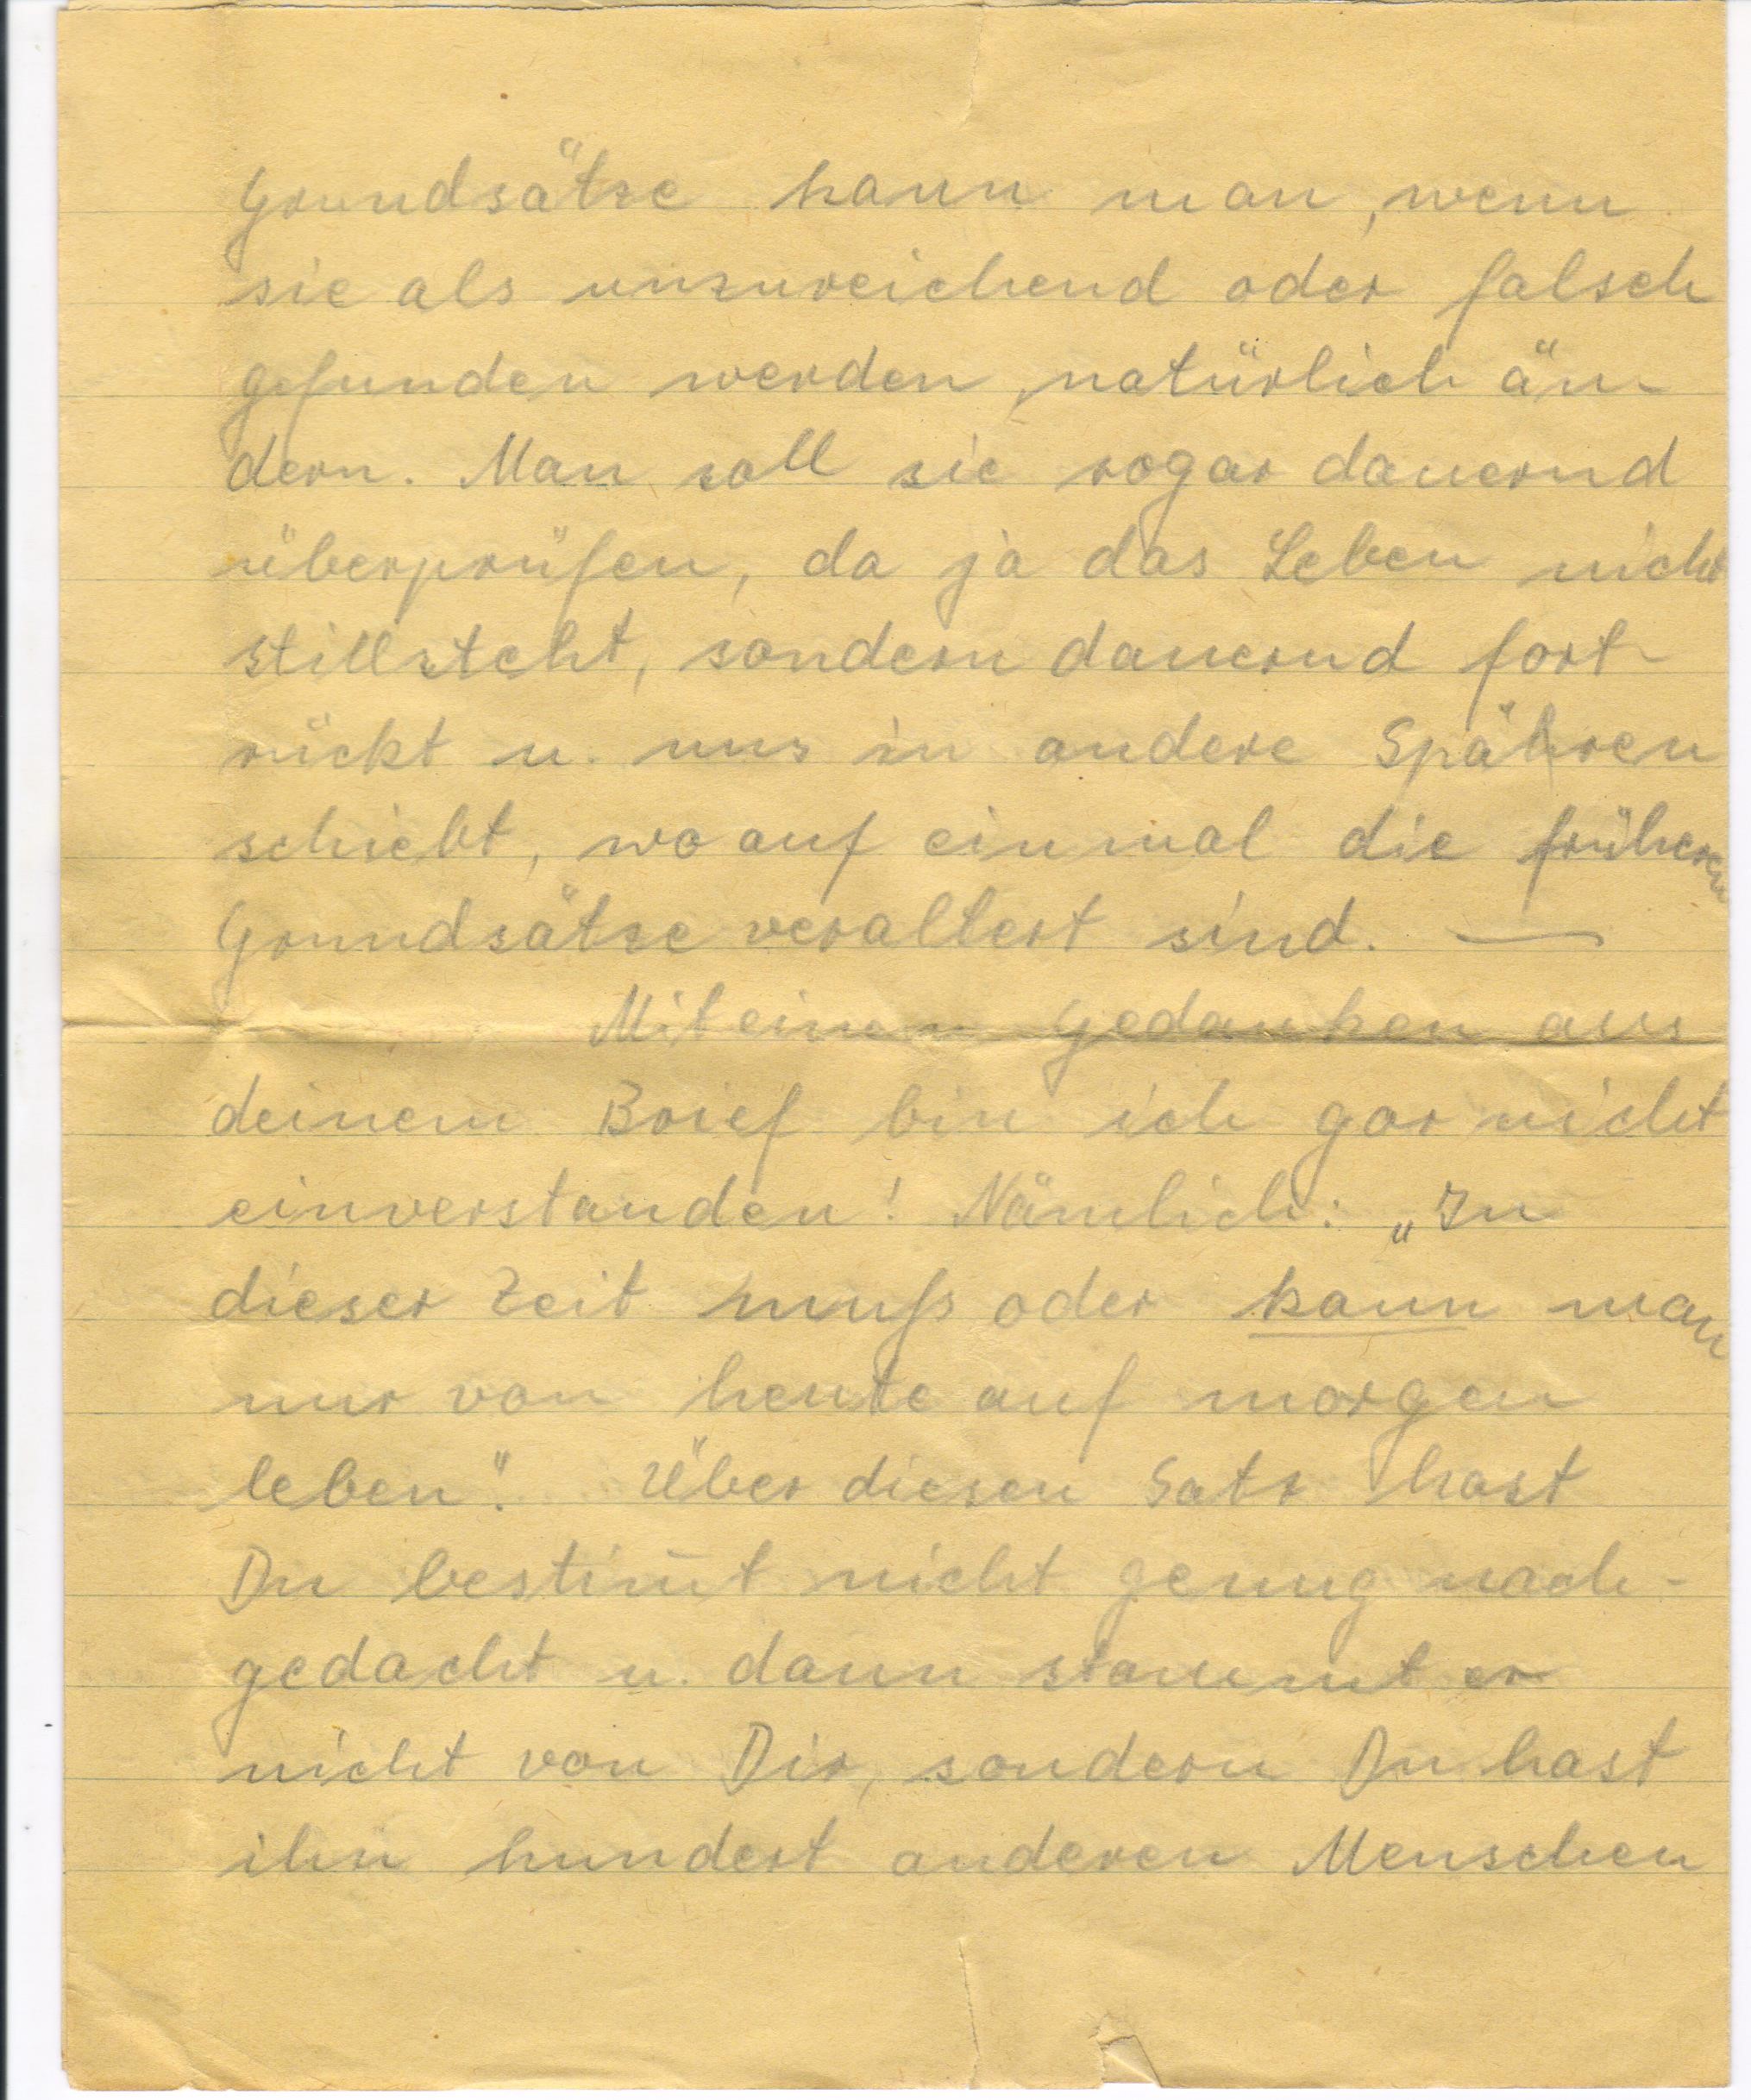 Grundsätze kann man, wenn
sie als unzureichend oder falsch
gefunden werden, natürlich än-
dern. Man soll sie sogar dauernd
überprüfen, da ja das Leben nicht
stillsteht, sondern dauernd fort-
rückt u. uns in andere Spähren
schiebt, wo auf einmal die früheren
Grundsätze veraltert sind. —
Mit einem Gedanken aus
deinem Brief bin ich gar nicht
einverstanden! Nämlich: „In
dieser Zeit muß oder kann man
nur von heute auf morgen
leben". Über diesen Satz hast
Du bestim̅t nicht genug nach-
gedacht u. dann stammt er
nicht von Dir, sondern Du hast
ihn hundert anderen Menschen